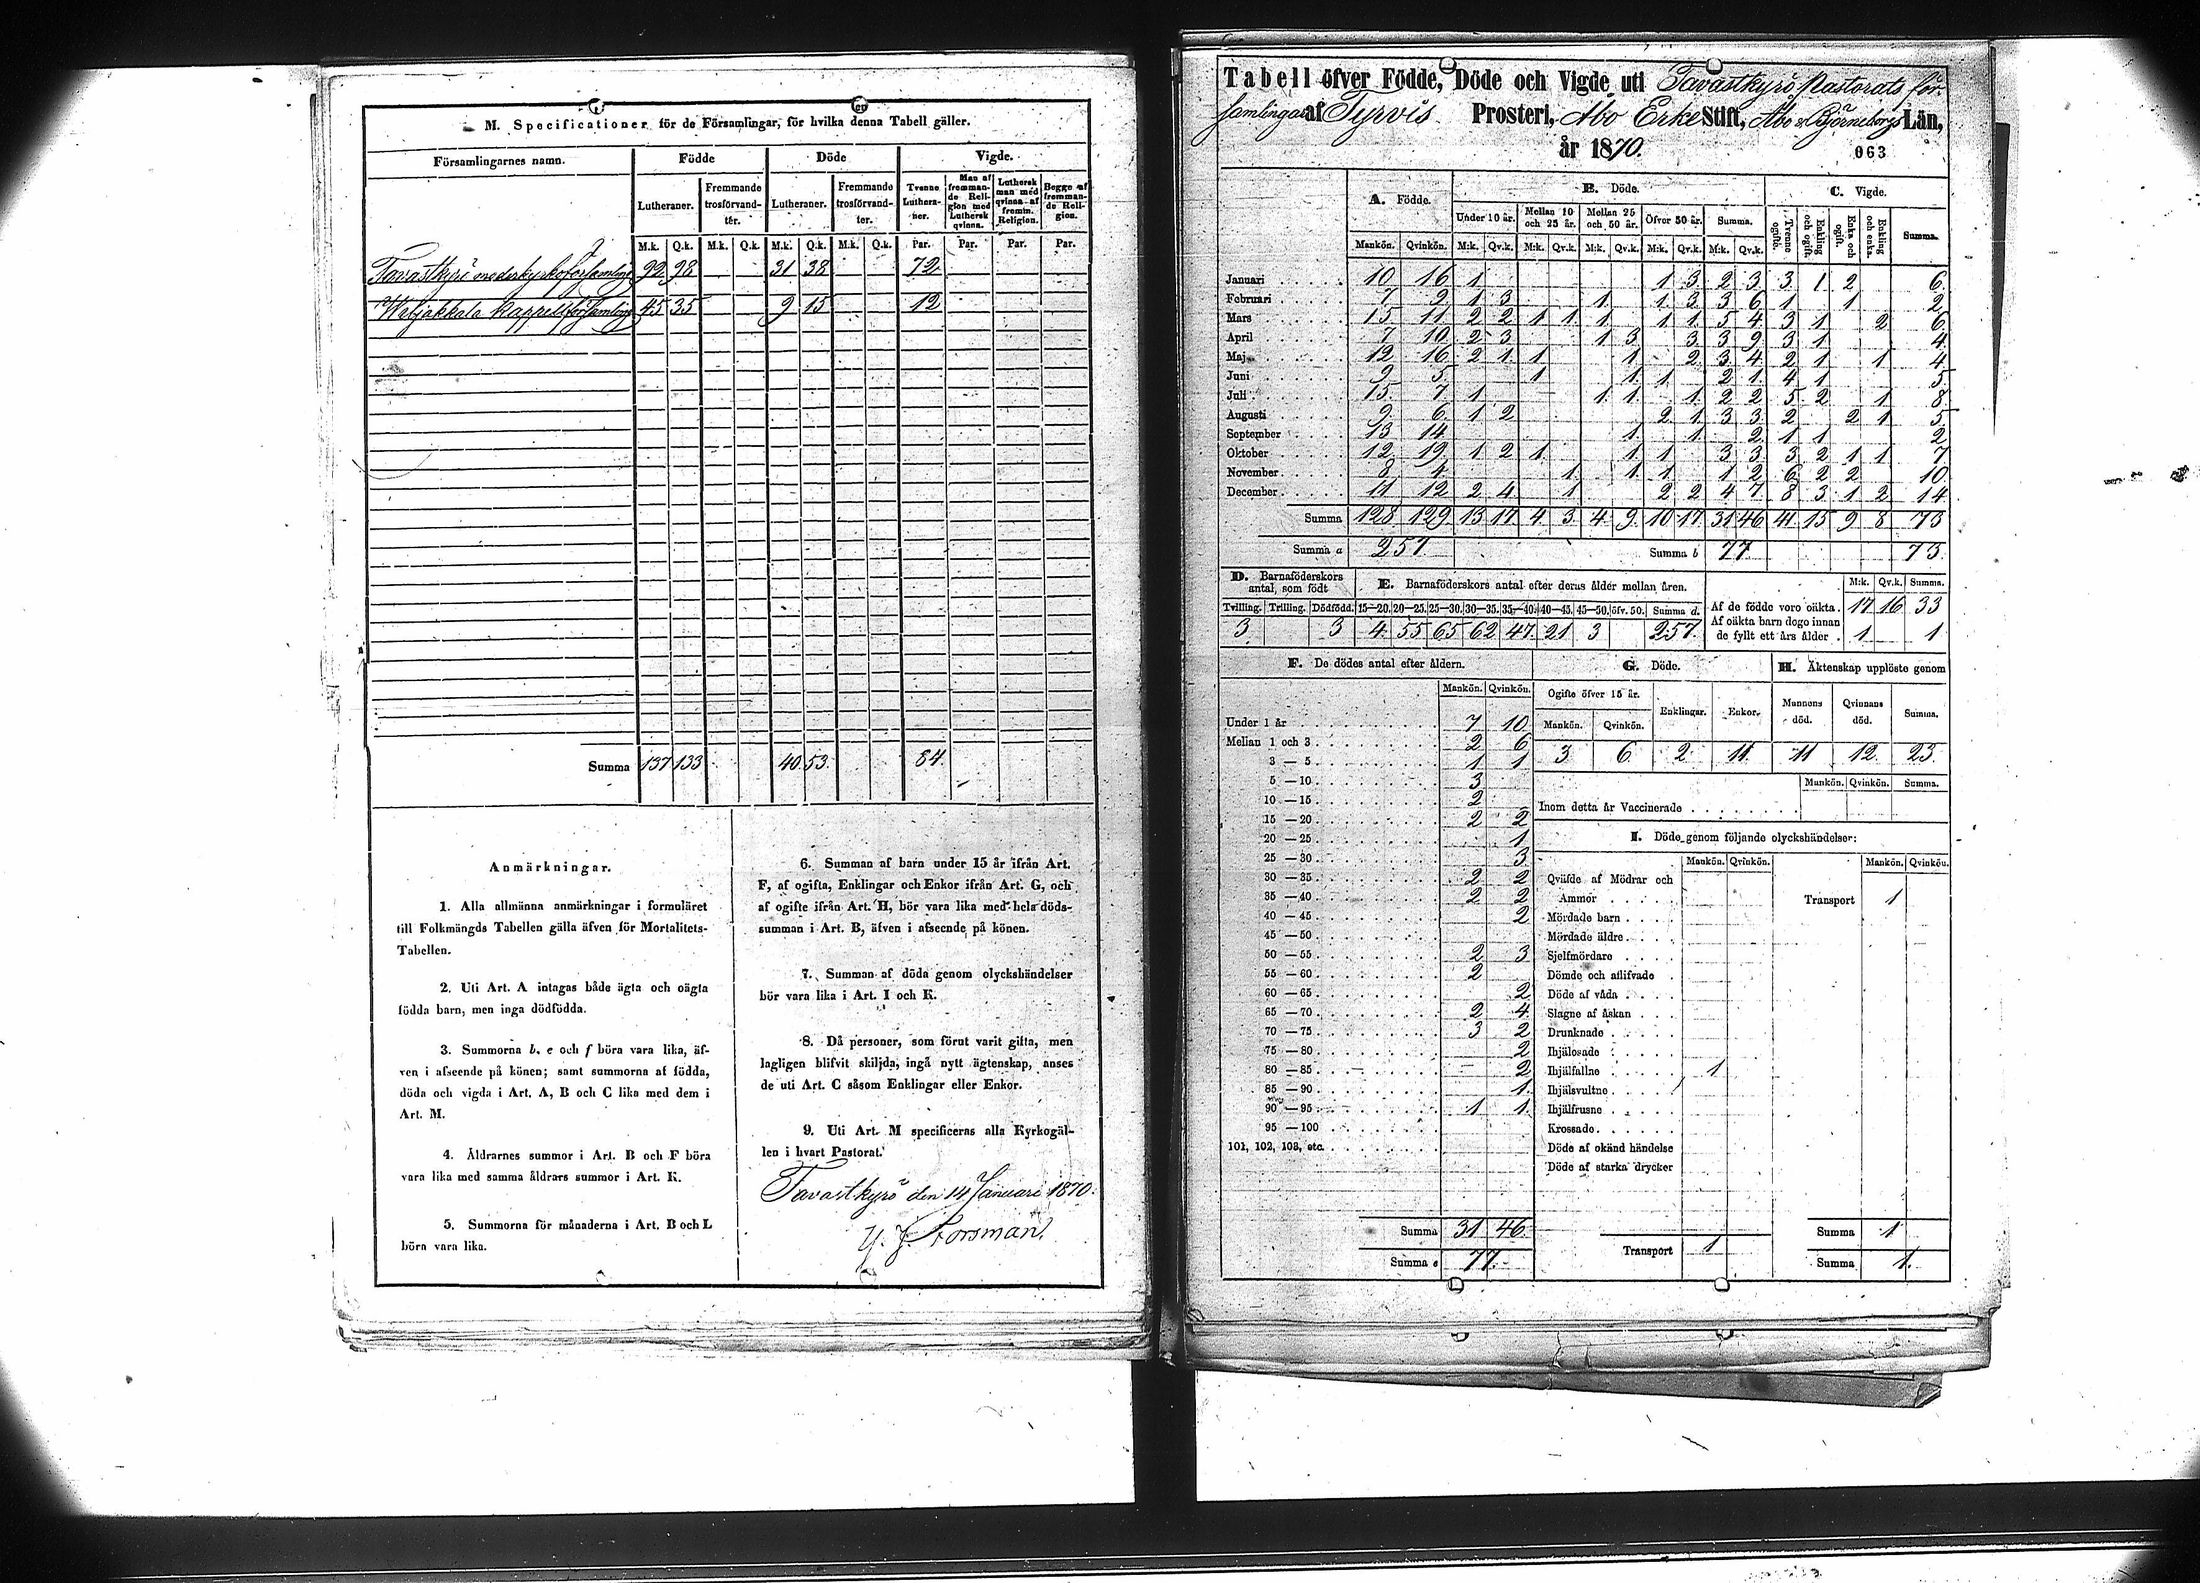 M. Specificationer för de Församlingar, för hvilka denna Tabell gäller.
Församlingarnes namn. Födde Döde Vigde.
Lutheraner. Fremmande trosförvandter. Lutheraner. Fremmande trosförvandter. Tvenne Lutheraner. Man af fremmande Religion med Luthersk qvinna. Luthersk man med qvinna af fremm. Religion. Begge af fremmande Religion.
M.k. Q.k. M.k. Q.k. M.k. Q.k. M.k. Q.k. Par. Par. Par. Par.
Tavastkyrö moderkyrkoförsamling 92 98 31 38 72
Wiljakkala kapellförsamling 45 35 9 15 12
Summa 137 133 40 53 84
Anmärkningar.
1. Alla allmänna anmärkningar i formuläret
till Folkmängds Tabellen gälla äfven för Mortalitets-
Tabellen.
2. Uti Art. A intagas både ägta och oägta
födda barn, men inga dödfödda.
3. Summorna b, e och f böra vara lika, äf-
ven i afseende på könen; samt summorna af födda,
döda och vigda i Art. A, B och C lika med dem i
Art. M.
4. Åldrarnes summor i Art. B och F böra
vara lika med samma åldrars summor i Art. K.
5. Summorna för månaderna i Art. B och L
böra vara lika.
6. Summan af barn under 15 år ifrån Art.
F, af ogifta, Enklingar och Enkor ifrån Art. G, och
af ogifte ifrån Art. H, bör vara lika med hela döds-
summan i Art. B, äfven i afseende på könen.
7. Summan af döda genom olyckshändelser
bör vara lika i Art. I och K.
8. Då personer, som förut varit gifta, men
lagligen blifvit skiljda, ingå nytt ägtenskap, anses
de uti Art. C såsom Enklingar eller Enkor.
9. Uti Art. M specificeras alla Kyrkogäl-
len i hvart Pastorat.
Tavastkyrö den 14 Januari 1870.
Forsman.
Tabell öfver Födde, Döde och Vigde uti Tavastkyrö Pastorats för-
samlingar af Tyrvis Prosteri, Åbo Erke Stift, Åbo o. Björneborgs Län,
år 1870. 063
A. Födde. B. Döde. C. Vigde.
Under 10 år. Mellan 10 och 25 år. Mellan 25 och 50 år. Öfver 50 år. Summa. Tvenne ogifte. Enkling och ogift. Enka och ogift. Enkling och enka. Summa.
Mankön. Qvinkön. M:k. Qv.k. M:k. Qv.k. M:k. Qv.k. M:k. Qv.k. M:k. Qv.k.
Januari 10 16 1 1 3 2 3 3 1 2 6
Februari 7 9 1 3 1 1 3 3 6 1 1 2
Mars 15 11 2 2 1 1 1 1 1 5 4 3 1 2 6
April 7 10 2 3 1 3 3 3 9 3 1 4
Maj 12 16 2 1 1 1 2 3 4 2 1 1 4
Juni 9 5 1 1 1 2 1 4 1 5
Juli 15 7 1 1 1 1 2 2 5 2 1 8
Augusti 9 6 1 2 2 1 3 3 2 2 1 5
September 13 14 1 1 2 1 1 2
Oktober 12 19 1 2 1 1 1 3 3 3 2 1 1 7
November 8 4 1 1 1 1 2 6 2 2 10
December 11 12 2 4 1 2 2 4 7 8 3 1 2 14
Summa 128 129 13 17 4 3 4 9 10 17 31 46 41 15 9 8 73
Summa a 257 Summa b 77 73
D. Barnaföderskors antal, som födt E. Barnaföderskors antal efter deras ålder mellan åren. M:k. Qv.k. Summa.
Tvilling. Trilling. Dödfödd. 15—20. 20—25. 25—30. 30—35. 35—40. 40—45. 45—50. öfv. 50. Summa d. Af de födde voro oäkta 17 16 33
3 3 4 55 65 62 47 21 3 257 Af oäkta barn dogo innan de fyllt ett års ålder 1 1
F. De dödes antal efter åldern.
Mankön. Qvinkön.
Under 1 år 7 10
Mellan 1 och 3 2 6
3 — 5 1 1
5 — 10 3
10 — 15 2
15 — 20 2 2
20 — 25 1
25 — 30 3
30 — 35 2 2
35 — 40 2 2
40 — 45 2
45 — 50
50 — 55 2 3
55 — 60 2
60 — 65 2
65 — 70 2 4
70 — 75 3 2
75 — 80 2
80 — 85 — 2
85 — 90 1
90 — 95 1 1
95 — 100
101, 102, 103, etc.
Summa 31 46
Summa e 77
G. Döde. H. Äktenskap upplöste genom
Ogifte öfver 15 år. Enklingar. Enkor. Mannens död. Qvinnans död. Summa.
Mankön. Qvinkön.
3 6 2 11 11 12 23
Mankön. Qvinkön. Summa.
Inom detta år Vaccinerade
I. Döde genom följande olyckshändelser:
Mankön. Qvinkön. Mankön. Qvinkön.
Qväfde af Mödrar och
Ammor Transport 1
Mördade barn
Mördade äldre
Sjelfmördare
Dömde och aflifvade
Döde af våda
Slagne af åskan
Drunknade
Ihjälosade
Ihjälfallne 1
Ihjälsvultne
Ihjälfrusne
Krossade
Döde af okänd händelse
Döde af starka drycker
Summa 1
Transport 1 Summa 1